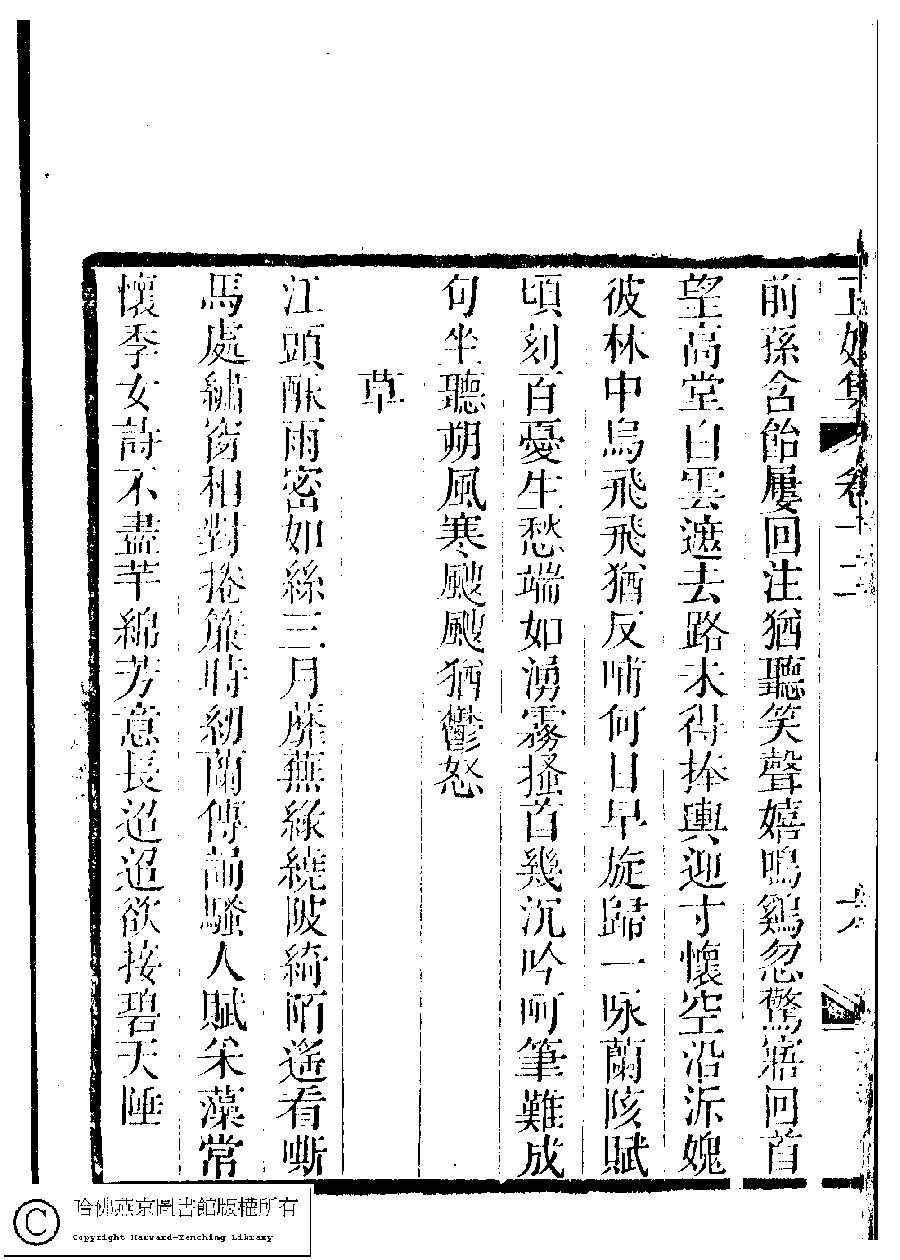 正始集 卷十二 六
前孫含飴屢回注猶聽笑聲嬉鳴鷄忽驚寤回首
望高堂白雲遮去路未得捧輿迎寸懷空沿泝媿
彼林中烏飛飛猶反哺何日早旋歸一咏蘭陔賦
頃刻百憂生愁端如湧霧搔首幾沉吟呵筆難成
句坐聽朔風寒颼颼猶鬱怒
草
江頭酥雨密如絲三月蘼蕪綠繞陂綺陌遥看嘶
馬處繡窗相對捲簾時紉蘭傳誦騷人賦采藻常
懷季女詩不盡芊綿芳意長迢迢欲接碧天陲
哈佛燕京圖書館版權所有
Copyright Harvard-Yenching Library